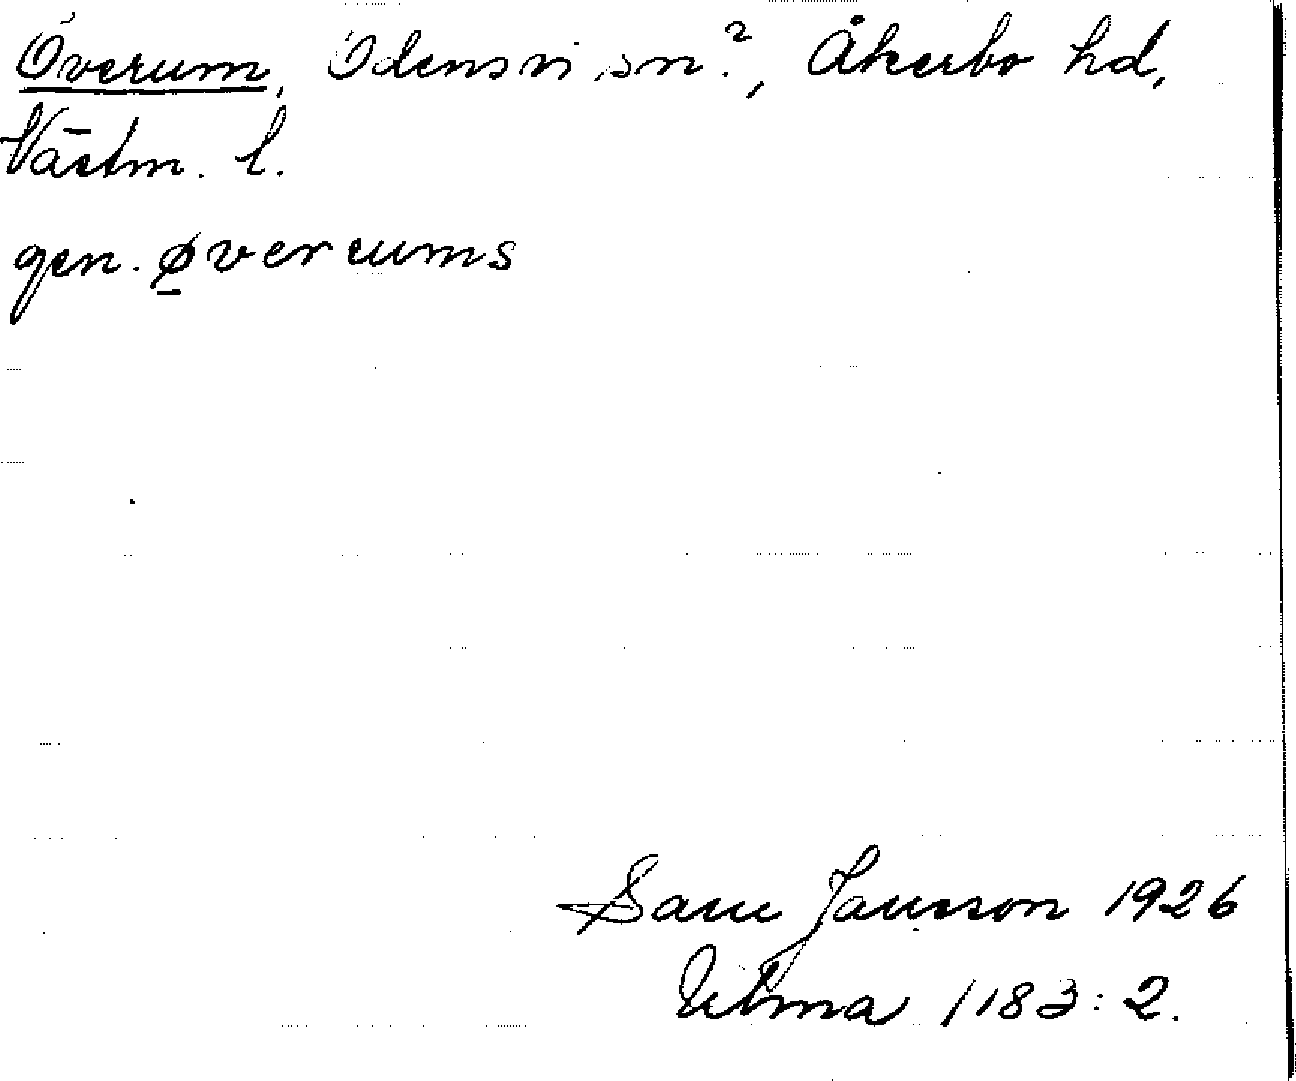 Överum, Odensvi sn.?, Åkerbo hd,
Västm. l.
gen. ø̱verums
Sam Jansson 1926
Ulma 1183:2.